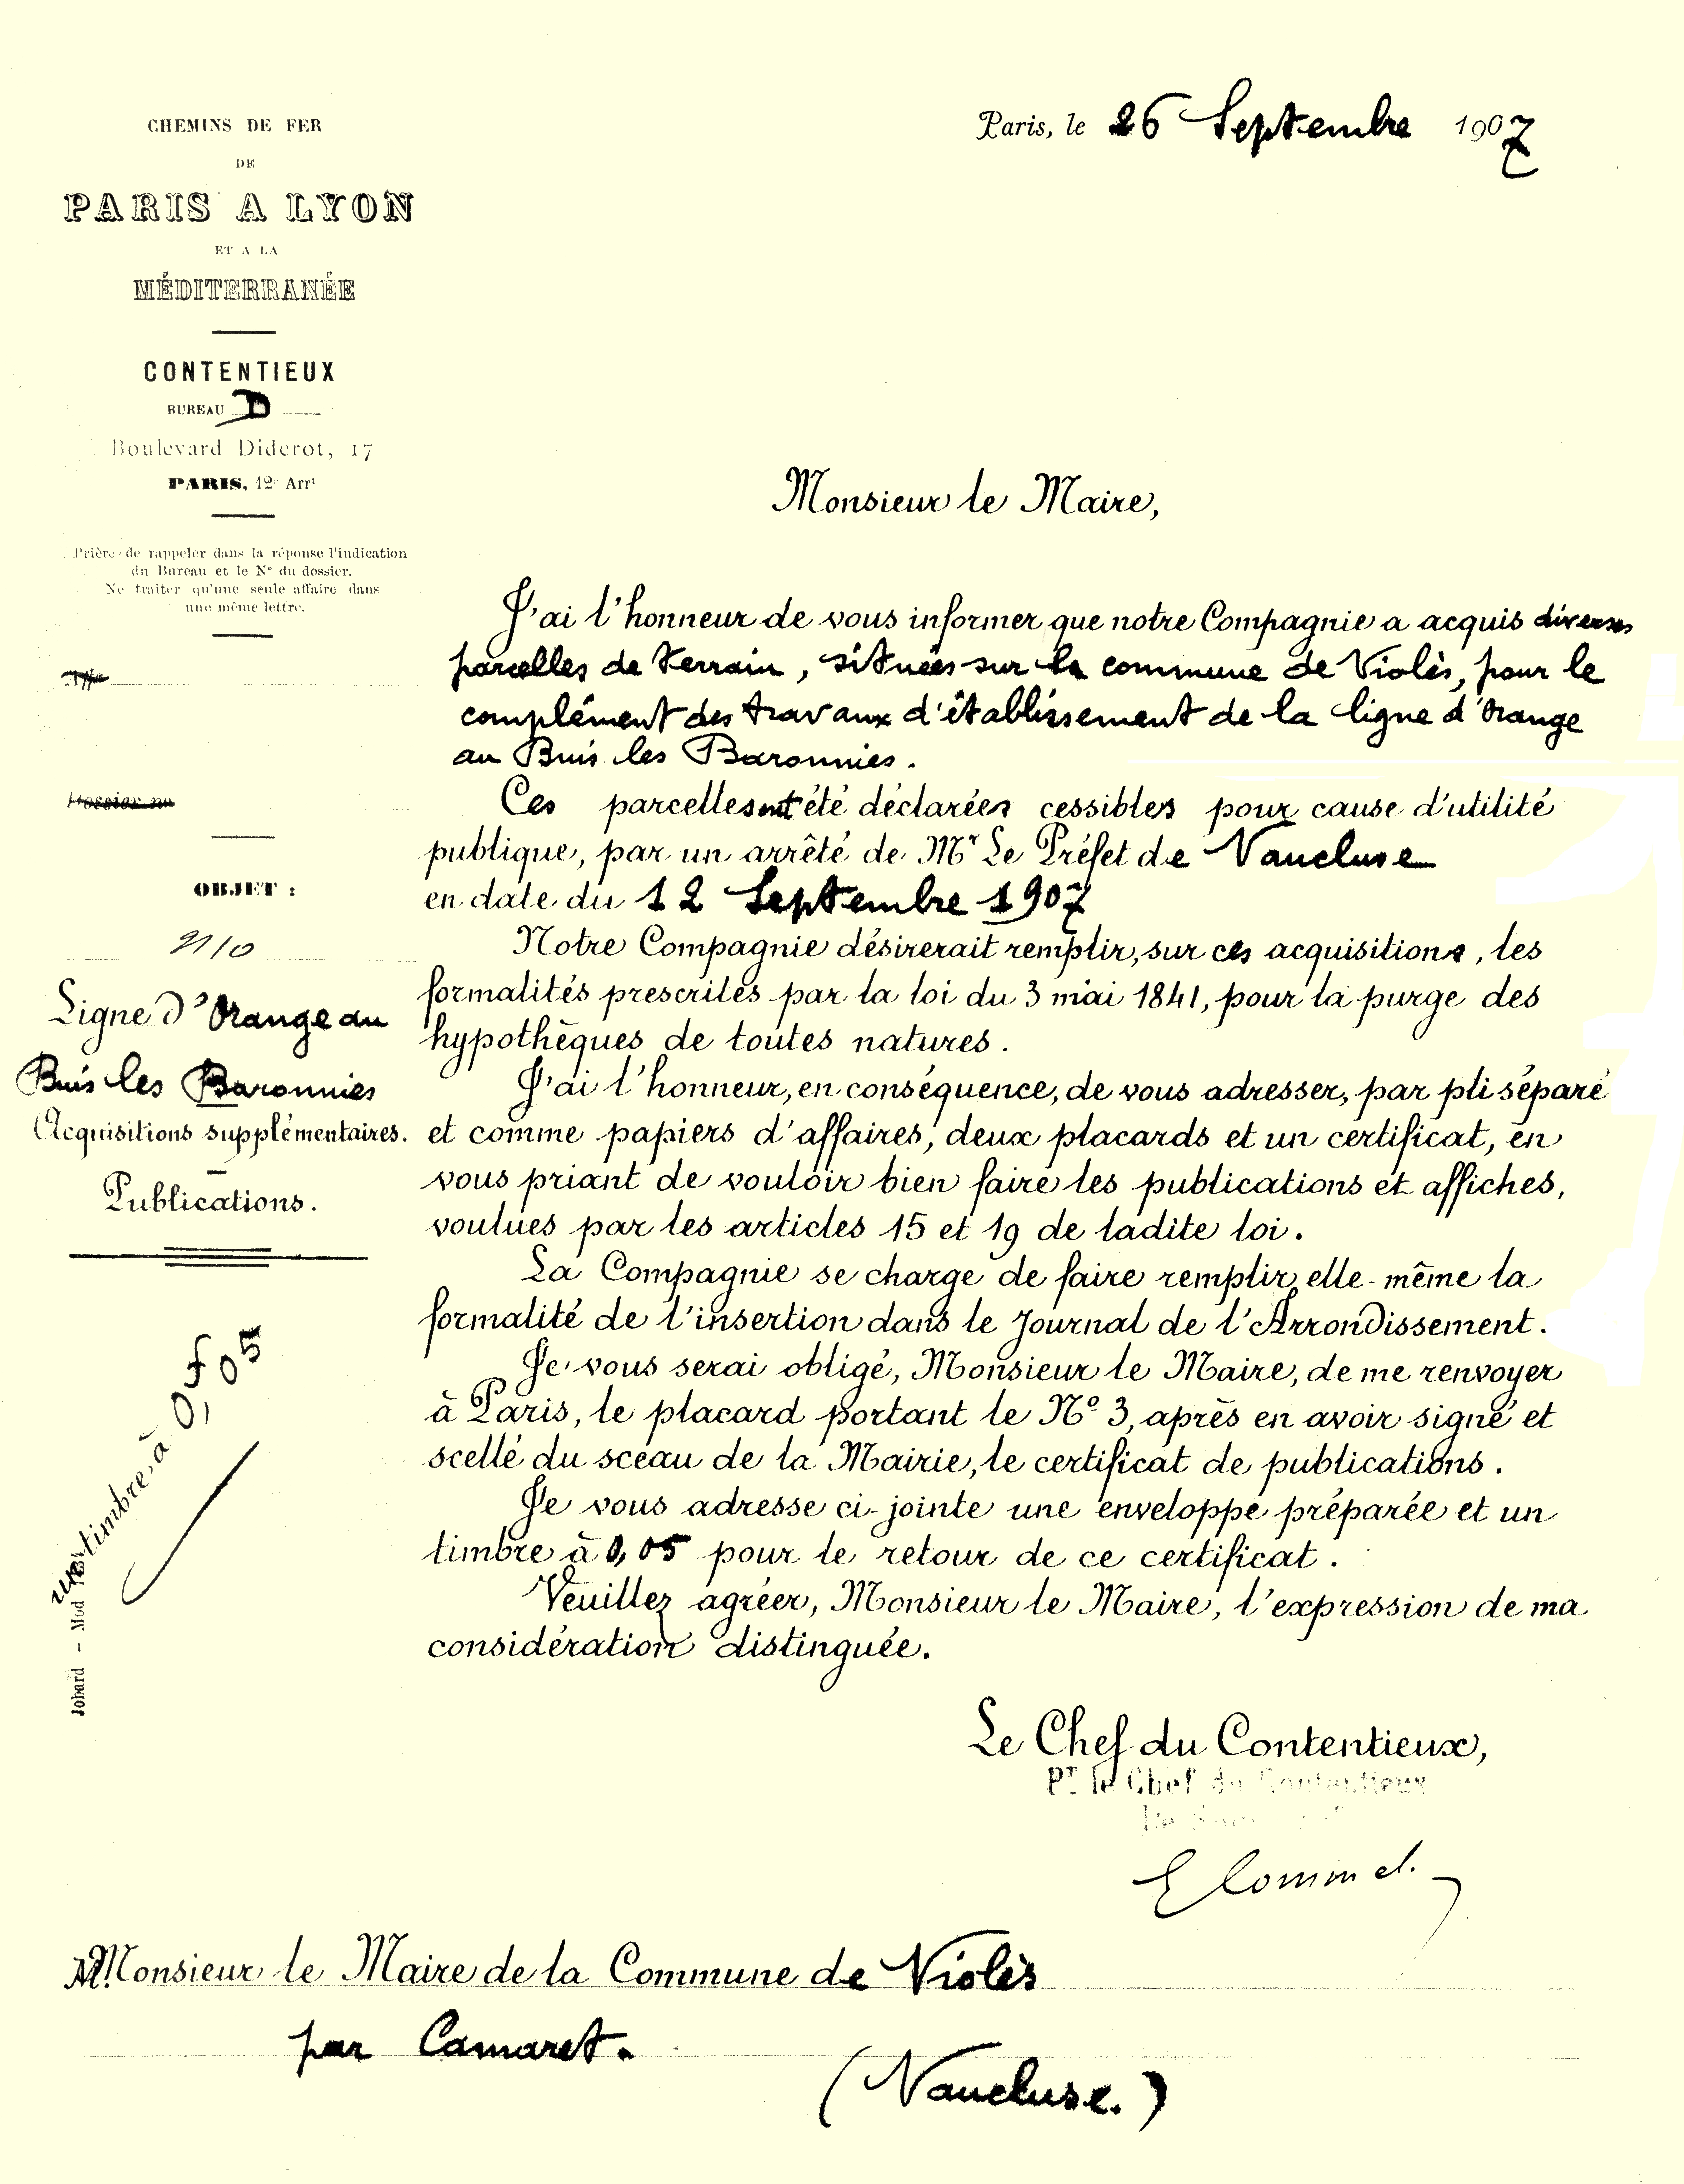 CHEMINS DE FER
DE
PARIS A LYON
ET A LA
MÉDITERRANÉE
CONTENTIEUX
BUREAU D
Boulevard Diderot, 17
PARIS, 12e Arrt
Prière de rappeler dans la réponse l'indication
du Bureau et le No du dossier.
Ne traiter qu'une seule affaire dans
une même lettre.
Dossier no
OBJET :
2110
Ligne d'Orange au
Buis les Baronnies
Acquisitions supplémentaires.
Publications.
un timbre à 0,f05
Jobard - Mod
Paris, le 26 Septembre 1907
Monsieur le Maire,
J'ai l'honneur de vous informer que notre Compagnie a acquis diverses
parcelles de terrain, situées sur la commune de Violès, pour le
complément des travaux d'établissement de la ligne d'Orange
au Buis les Baronnies.
Ces parcelles ont été déclarées cessibles pour cause d'utilité
publique, par un arrêté de Mr Le Préfet de Vaucluse
en date du 12 Septembre 1907
Notre Compagnie désirerait remplir, sur ces acquisitions, les
formalités prescrites par la loi du 3 mai 1841, pour la purge des
hypothèques de toutes natures.
J'ai l'honneur, en conséquence, de vous adresser, par pli séparé
et comme papiers d'affaires, deux placards et un certificat, en
vous priant de vouloir bien faire les publications et affiches,
voulues par les articles 15 et 19 de ladite loi.
La Compagnie se charge de faire remplir elle-même la
formalité de l'insertion dans le Journal de l'Arrondissement.
Je vous serai obligé, Monsieur le Maire, de me renvoyer
à Paris, le placard portant le No 3, après en avoir signé et
scellé du sceau de la Mairie, le certificat de publications.
Je vous adresse ci-jointe une enveloppe préparée et un
timbre à 0,05 pour le retour de ce certificat.
Veuillez agréer, Monsieur le Maire, l'expression de ma
considération distinguée.
Le Chef du Contentieux,
Pr le Chef du Contentieux
Monsieur le Maire de la Commune de Violès
par Camaret.
(Vaucluse.)